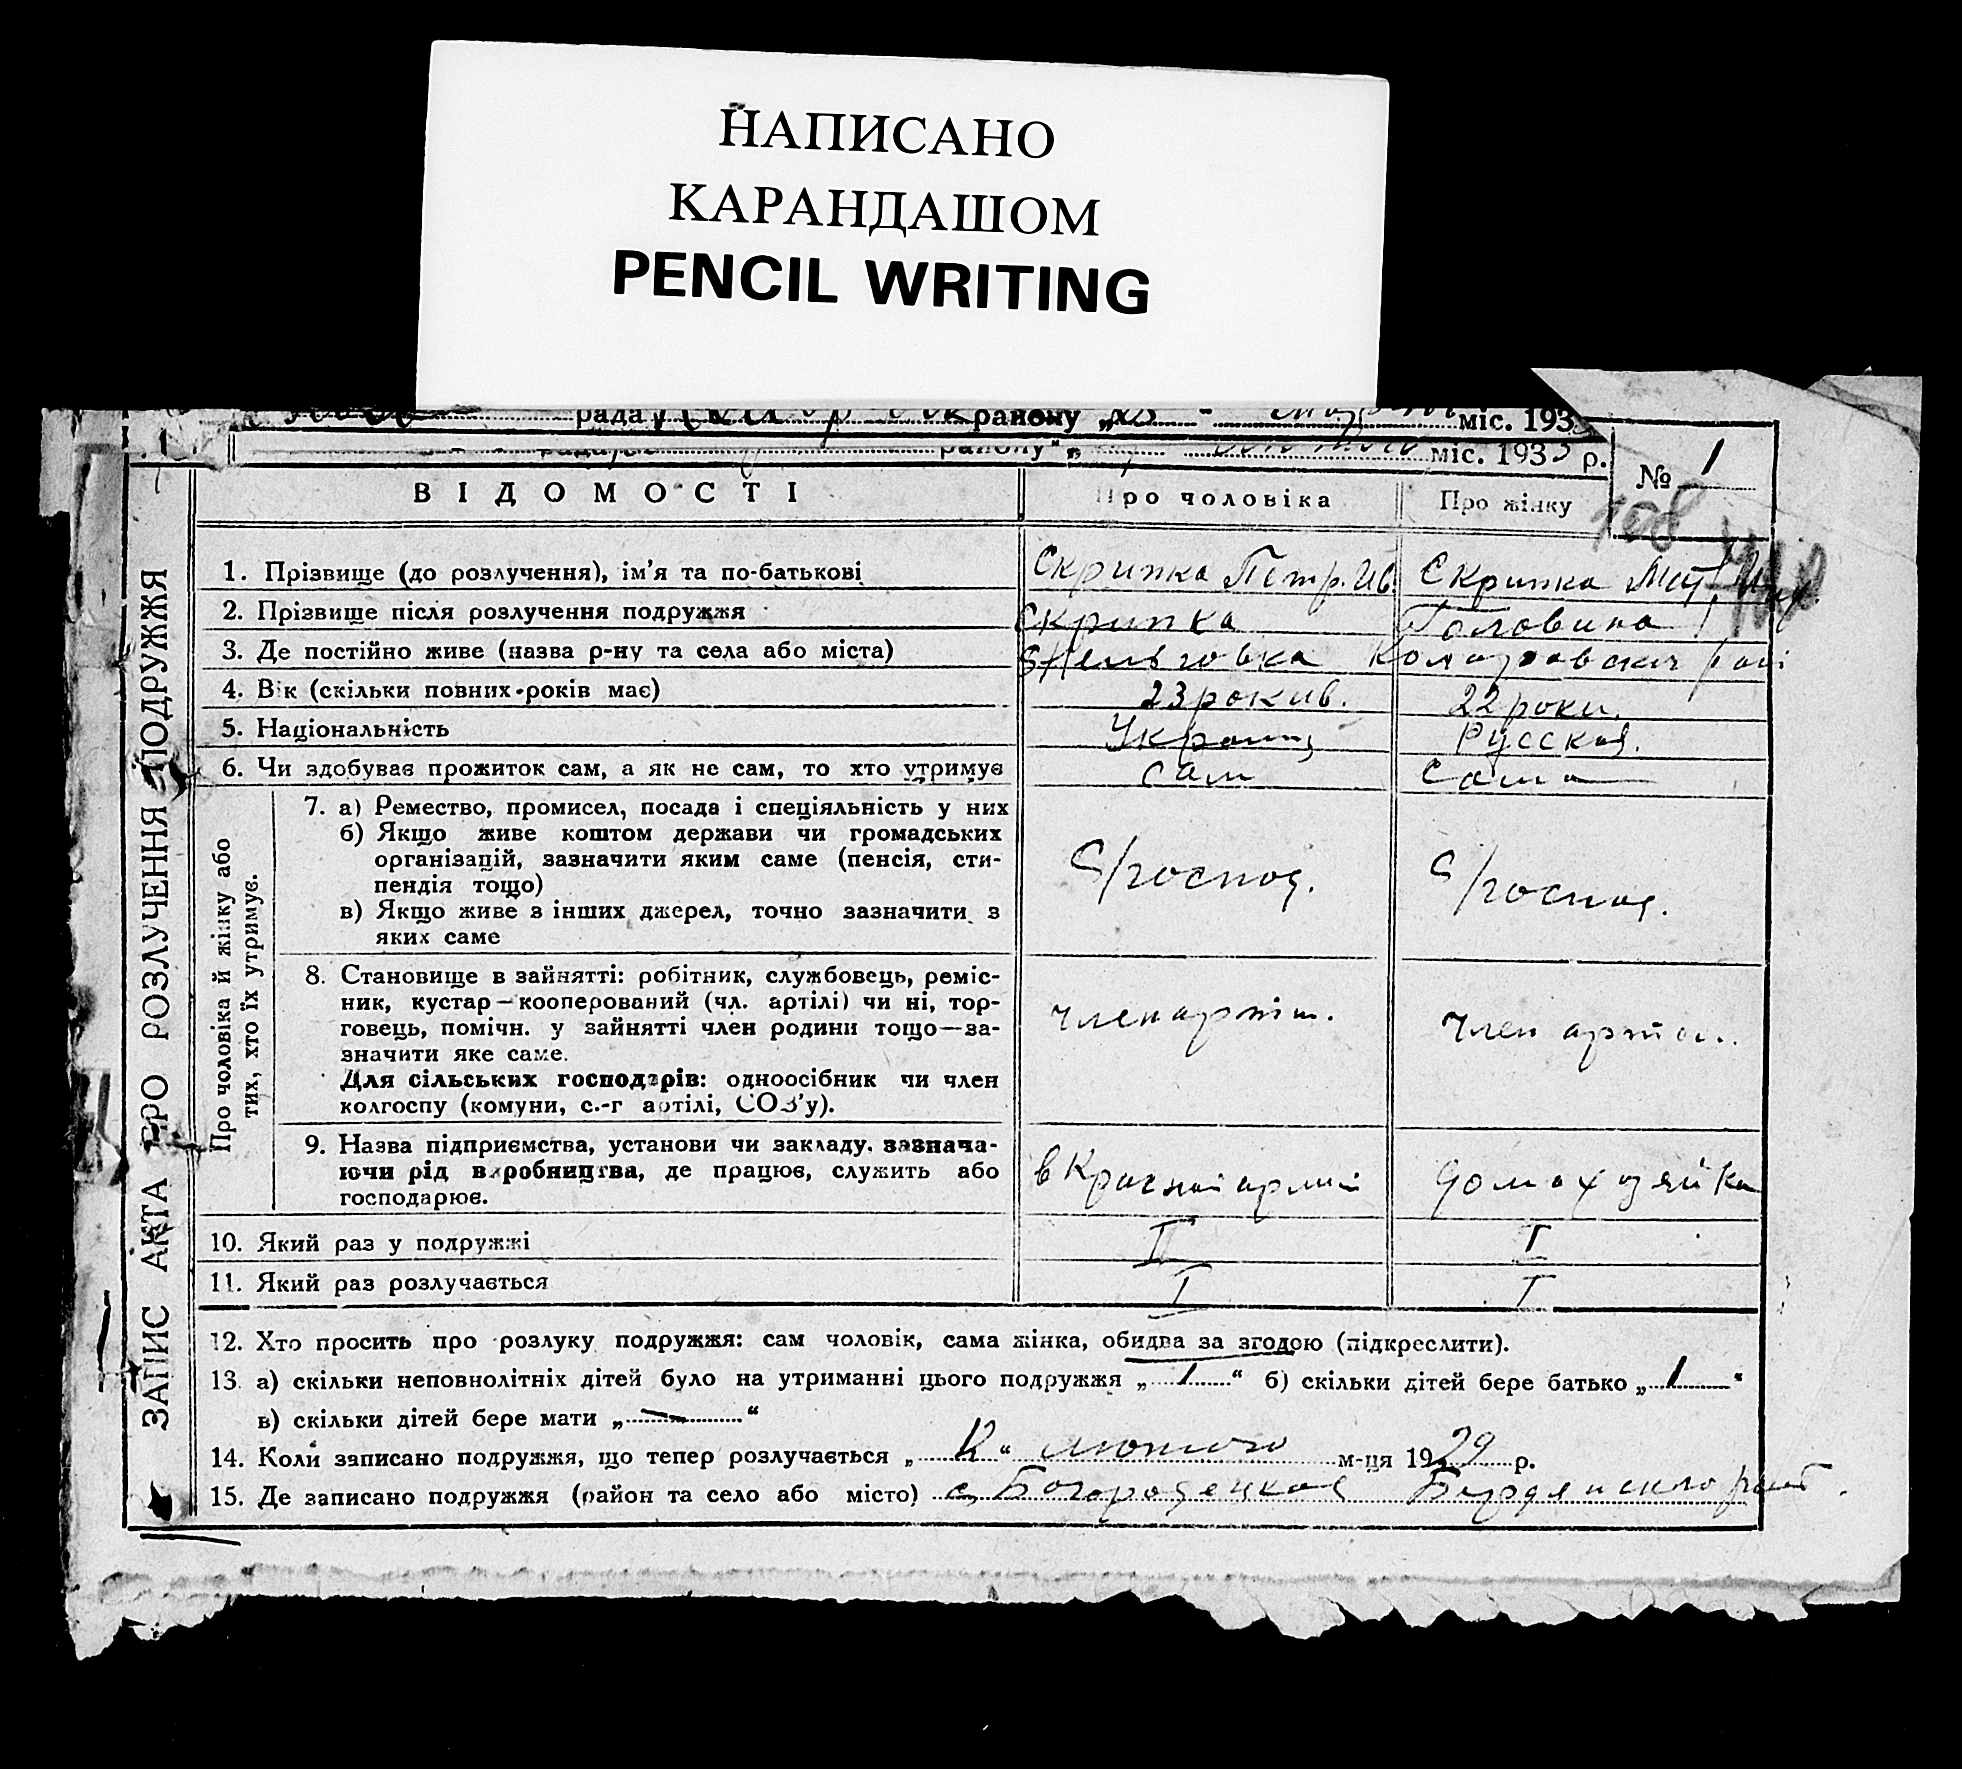 НАПИСАНО
КАРАНДАШОМ
PENCIL WRITING
рада району „ міс. 193
району „ міс. 1933 р.
№ 1
108
ВІДОМОСТІ Про чоловіка Про жінку
ЗАПИС АКТА ПРО РОЗЛУЧЕННЯ ПОДРУЖЖЯ
1. Прізвище (до розлучення), ім’я та по-батькові Скрипка Петр. Ив. Скрипка
2. Прізвище після розлучення подружжя Скрипка Головина
3. Де постійно живе (назва р-ну та села або міста)
4. Вік (скільки повних років має) 23 рокив. 22 роки.
5. Національність Украинц Русская.
6. Чи здобуває прожиток сам, а як не сам, то хто утримує сам сама
Про чоловіка й жінку або
тих, хто їх утримує.
7. а) Ремество, промисел, посада і спеціяльність у них
б) Якщо живе коштом держави чи громадських
організацій, зазначити яким саме (пенсія, сти-
пендія тощо)
в) Якщо живе з інших джерел, точно зазначити з
яких саме
С/господ. С/господ.
8. Становище в зайнятті: робітник, службовець, реміс-
ник, кустар—кооперований (чл. артілі) чи ні, тор-
говець, помічн. у зайнятті член родини тощо—за-
значити яке саме.
Для сільських господарів: одноосібник чи член
колгоспу (комуни, с.-г артілі, СОЗ’у).
член артіл. член артел.
9. Назва підприємства, установи чи закладу, зазнача-
ючи рід виробництва, де працює, служить або
господарює.
в Красной армии домахозяйка
10. Який раз у подружжі II I
11. Який раз розлучається I I
12. Хто просить про розлуку подружжя: сам чоловік, сама жінка, обидва за згодою (підкреслити).
13. а) скільки неповнолітніх дітей було на утриманні цього подружжя „1“ б) скільки дітей бере батько „1“
в) скільки дітей бере мати „—“
14. Коли записано подружжя, що тепер розлучається „12“ лютого м-ця 1929 р.
15. Де записано подружжя (район та село або місто) с. Богородецкое Бердянского